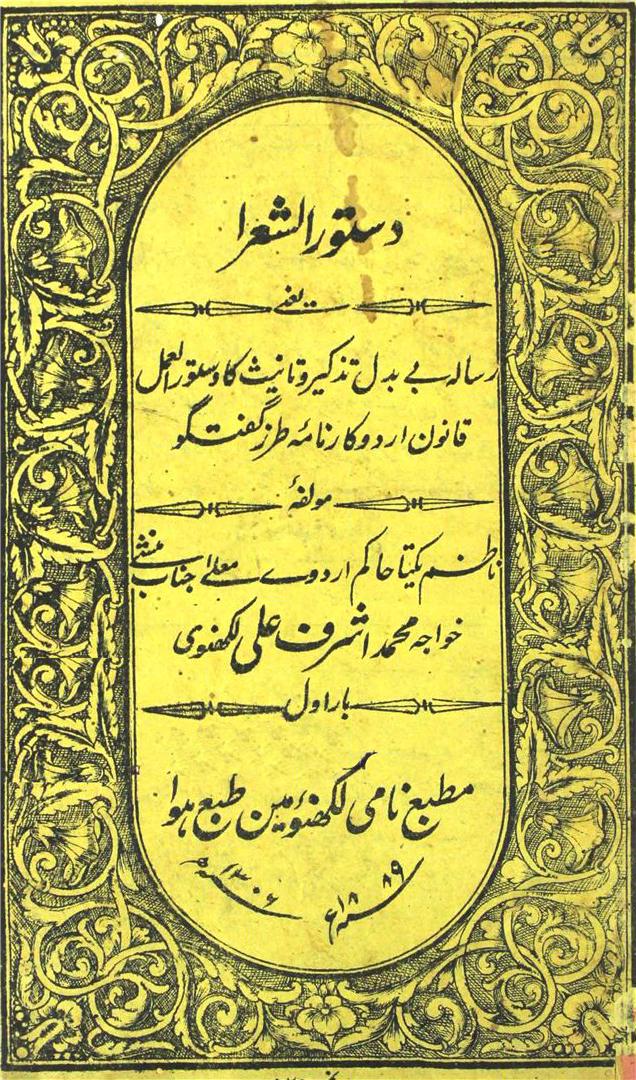 دستور الشعرا
یعنے
رسالہ بے بدل تذکیر و تانیث کا دستور العمل
قانون اردو کارنامۂ طرز گفتگو
مولفۂ
ناظم یکتا حاکم اردوے معلے جناب منشے
خواجہ محمد اشرف علی لکھنوی
بار اول
مطبع نامی لکھنؤ مین طبع ہوا
۱۳۰۶ھ ۱۸۸۹ء